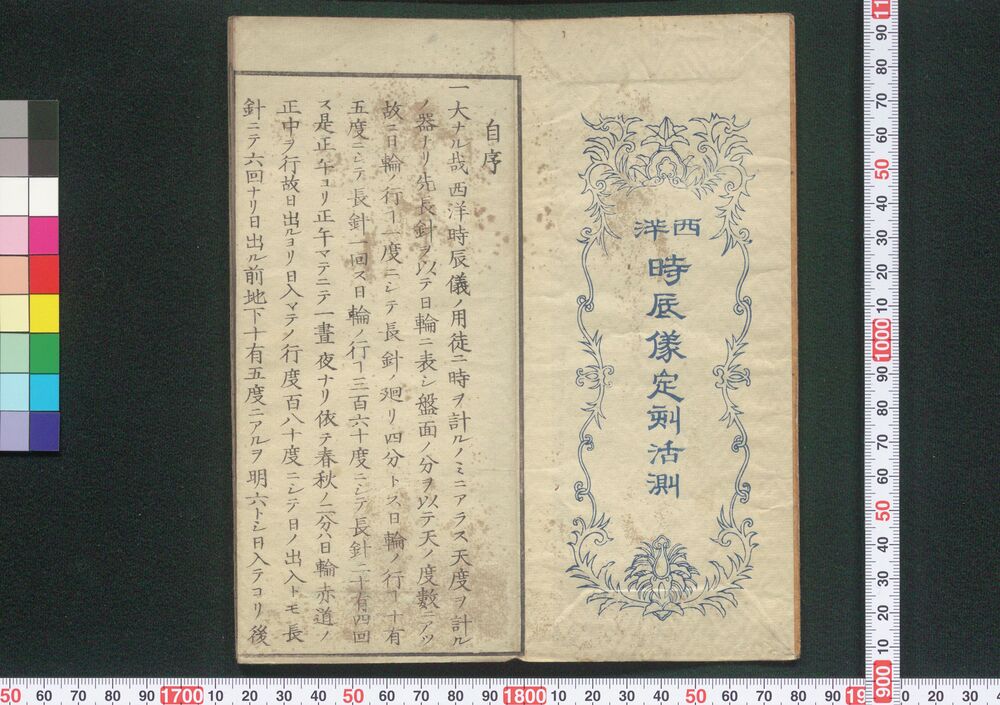 西洋
時辰儀定刻活測
自序
一大ナル哉西洋時辰儀ノ用徒ニ時ヲ計ルノミニアラス天度ヲ計ル
ノ器ナリ先長針ヲ以テ日輪ニ表シ盤面ノ分ヲ以テ天ノ度數ニアツ
故ニ日輪ノ行ヿ一度ニシテ長針ノ廻リ四分トス日輪ノ行ヿ十有
五度ニシテ長針一回ス日輪ノ行ヿ三百六十度ニシテ長針二十有四回
ス是正午ヨリ正午マテニテ一晝夜ナリ依テ春秋ノ二分ハ日輪赤道ノ
正中ヲ行故日出ルヨリ日入マテノ行度百八十度ニシテ日ノ出入トモ長
針ニテ六回ナリ日出ル前地下十有五度ニアルヲ明六トシ日入テヨリ後
90 80 70 60 50 40 30 20 10 1000 90 80 70 60 50 40 30 20 10 900
50 60 70 80 90 1700 10 20 30 40 50 60 70 80 90 1800 10 20 30 40 50 60 70 80 90
0 10 20 30